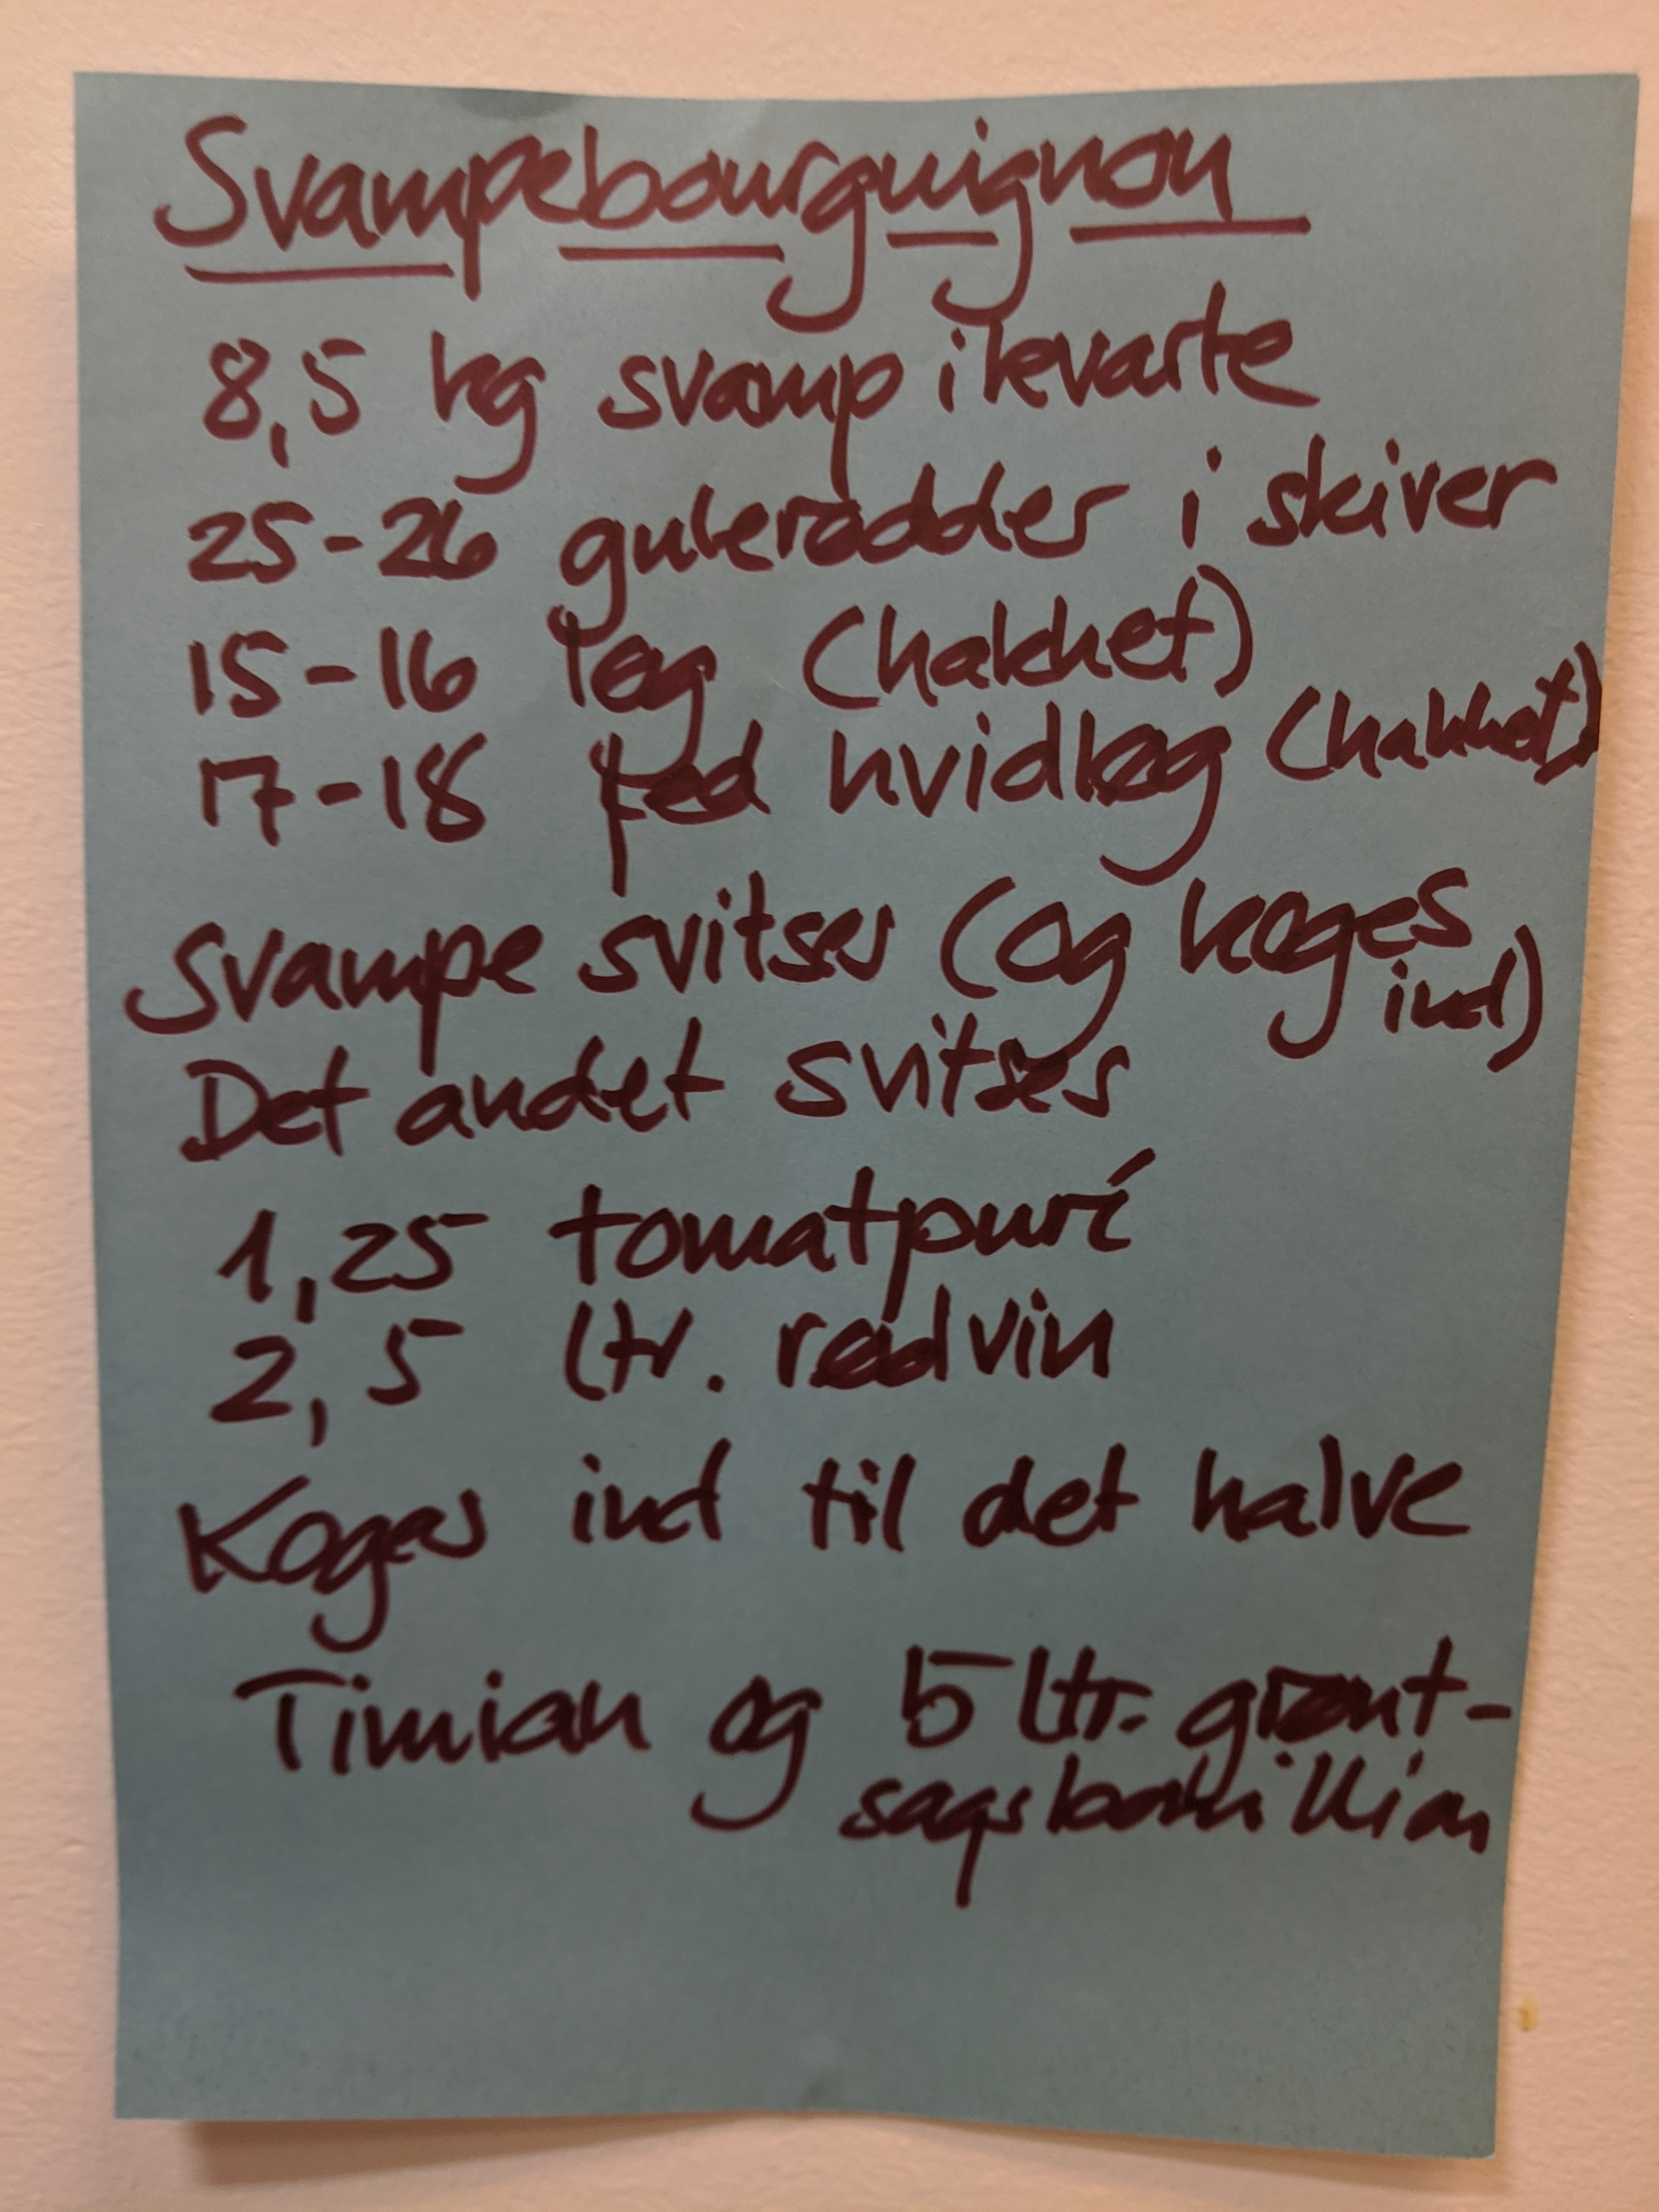 Svampebourguignon
8,5 kg svamp i kvarte
25-26 gulerødder i skiver
15-16 løg (hakket)
17-18 fed hvidløg (hakket)
Svampe svitses (og koges
ind)
Det andet svitses
1,25 tomatpuré
2,5 ltr. rødvin
Koges ind til det halve
Timian og 5 ltr. grønt-
sagsbouillion